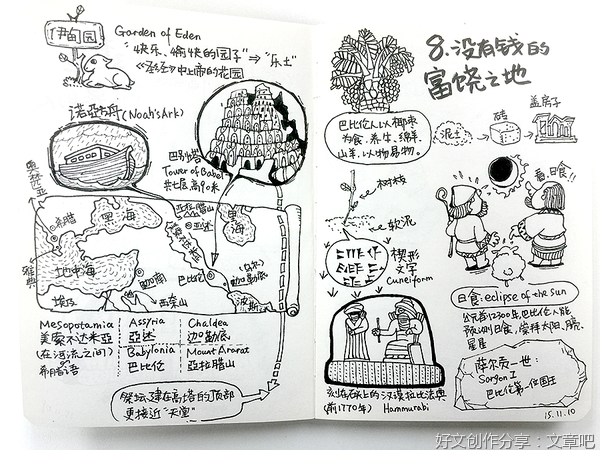 伊甸园
Garden of Eden
"快乐、愉快的园子"⇒"乐土"
《圣经》中上帝的花园
诺亚方舟(Noah's Ark)
巴别塔
Tower of Babel
共七层,高90米
奥林匹亚
希腊
黑海
亚拉腊山
亚述
里海
雅典
地中海
迦南
巴比伦
(乌尔)
迦勒底
埃及
西奈山
波斯
Mesopotamia
美索不达米亞
(在河流之间)
希腊语
Assyria
亞述
Chaldea
迦勒底
Babylonia
巴比伦
Mount Ararat
亞拉腊山
祭坛建在高塔的顶部
更接近"天堂"
8.没有钱的
富饶之地
巴比伦人以椰枣
为食,养牛、绵羊、
山羊,以物易物。
泥土
砖
盖房子
树枝
软泥
楔形
文字
Cuneiform
看,日食!!
日食:eclipse of the Sun
公元前2300年,巴比伦人能
预测日食,崇拜太阳、月亮、
星星
刻在石头上的汉谟拉比法典
(前1770年) Hammurabi
萨尔贡一世:
Sargon I
巴比伦第一位国王
15.11.10
好文创作分享:文章吧